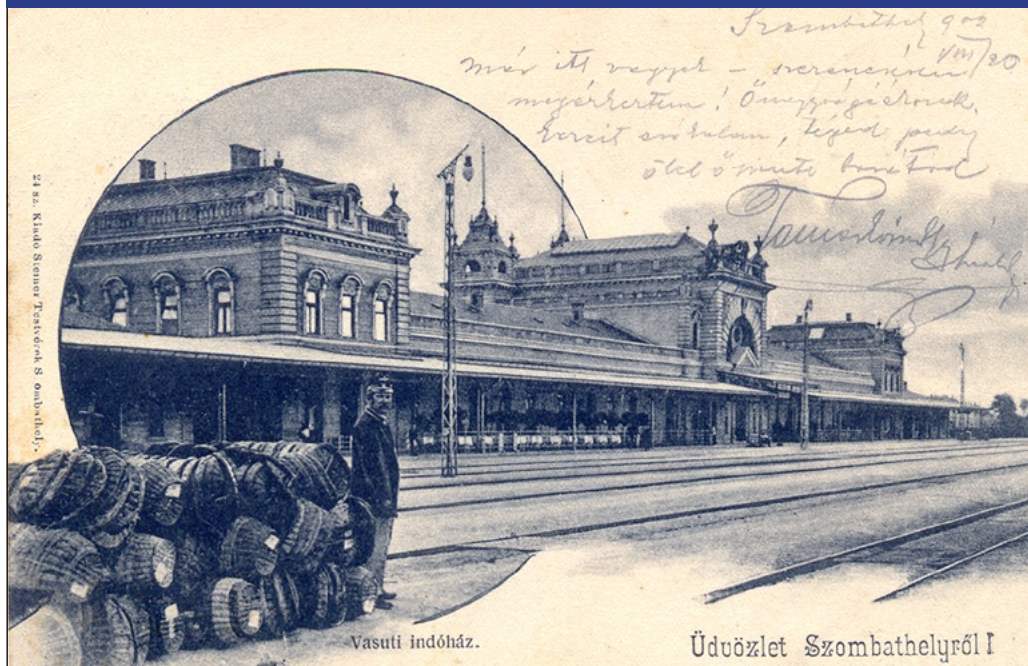 Szombathely 902
VIII/20
már itt vagyok – szerencsésen
megérkeztem! Őnagyságáéknak
kezeit csókolom, téged pedig
ölel őszinte barátod
24 sz. Kiadó Steiner Testvérek S ombathely.
Vasuti indóház.
Üdvözlet Szombathelyről!